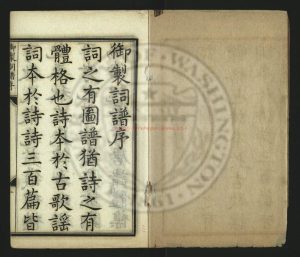 御製詞譜序
詞之有圖譜猶詩之有
體格也詩本於古歌謡
詞本於詩詩三百篇皆
WASHINGTON